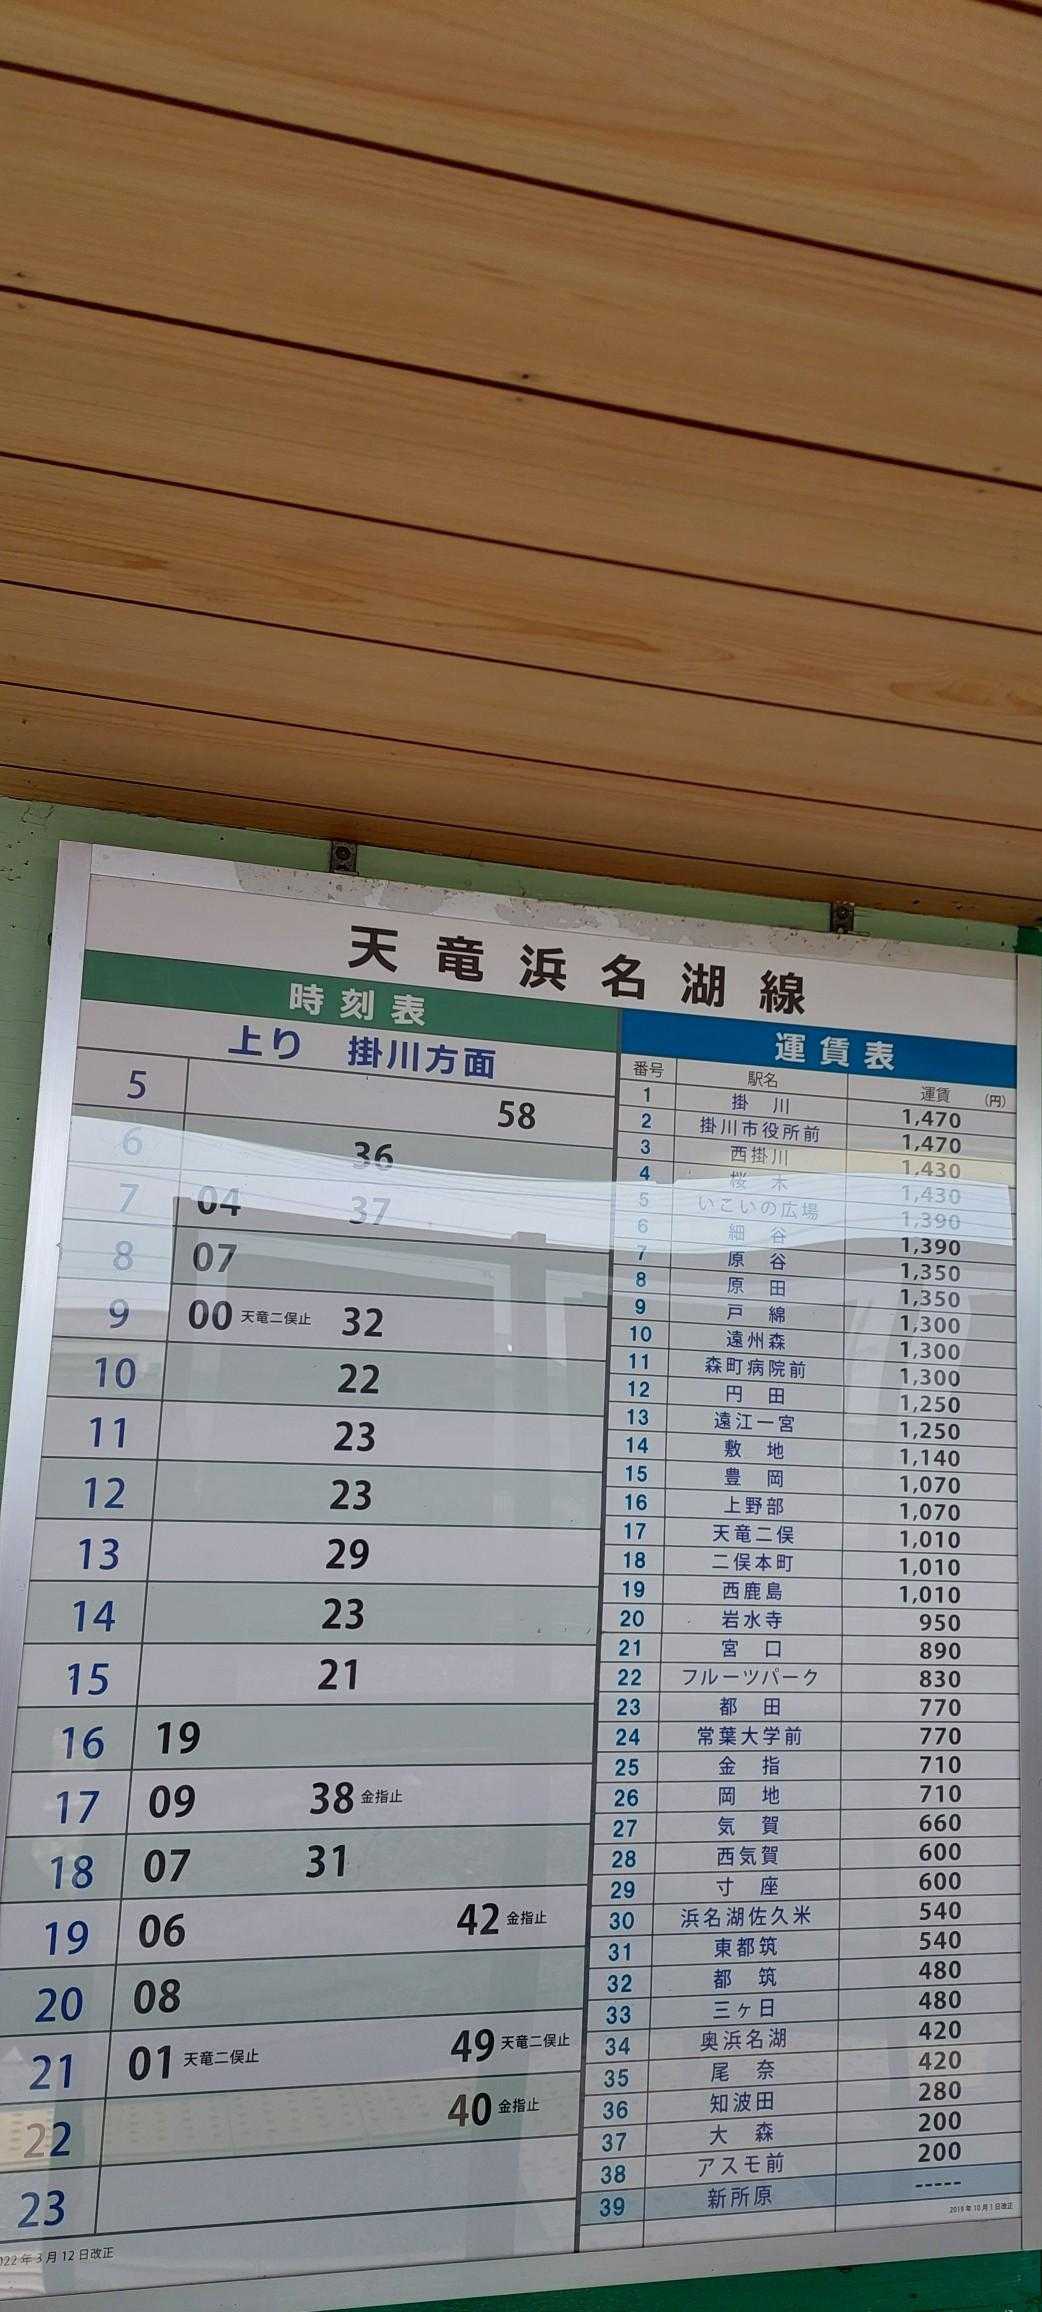 天竜浜名湖線
時刻表
上り 掛川方面
5 58
6 36
7 04 37
8 07
9 00 天竜二俣止 32
10 22
11 23
12 23
13 29
14 23
15 21
16 19
17 09 38 金指止
18 07 31
19 06 42 金指止
20 08
21 01 天竜二俣止 49 天竜二俣止
22 40 金指止
23
022年3月12日改正
運賃表
番号 駅名 運賃 (円)
1 掛川 1,470
2 掛川市役所前 1,470
3 西掛川 1,430
4 桜木 1,430
5 いこいの広場 1,390
6 細谷 1,390
7 原谷 1,350
8 原田 1,350
9 戸綿 1,300
10 遠州森 1,300
11 森町病院前 1,300
12 円田 1,250
13 遠江一宮 1,250
14 敷地 1,140
15 豊岡 1,070
16 上野部 1,070
17 天竜二俣 1,010
18 二俣本町 1,010
19 西鹿島 1,010
20 岩水寺 950
21 宮口 890
22 フルーツパーク 830
23 都田 770
24 常葉大学前 770
25 金指 710
26 岡地 710
27 気賀 660
28 西気賀 600
29 寸座 600
30 浜名湖佐久米 540
31 東都筑 540
32 都筑 480
33 三ヶ日 480
34 奥浜名湖 420
35 尾奈 420
36 知波田 280
37 大森 200
38 アスモ前 200
39 新所原 -----
2019年10月1日改正